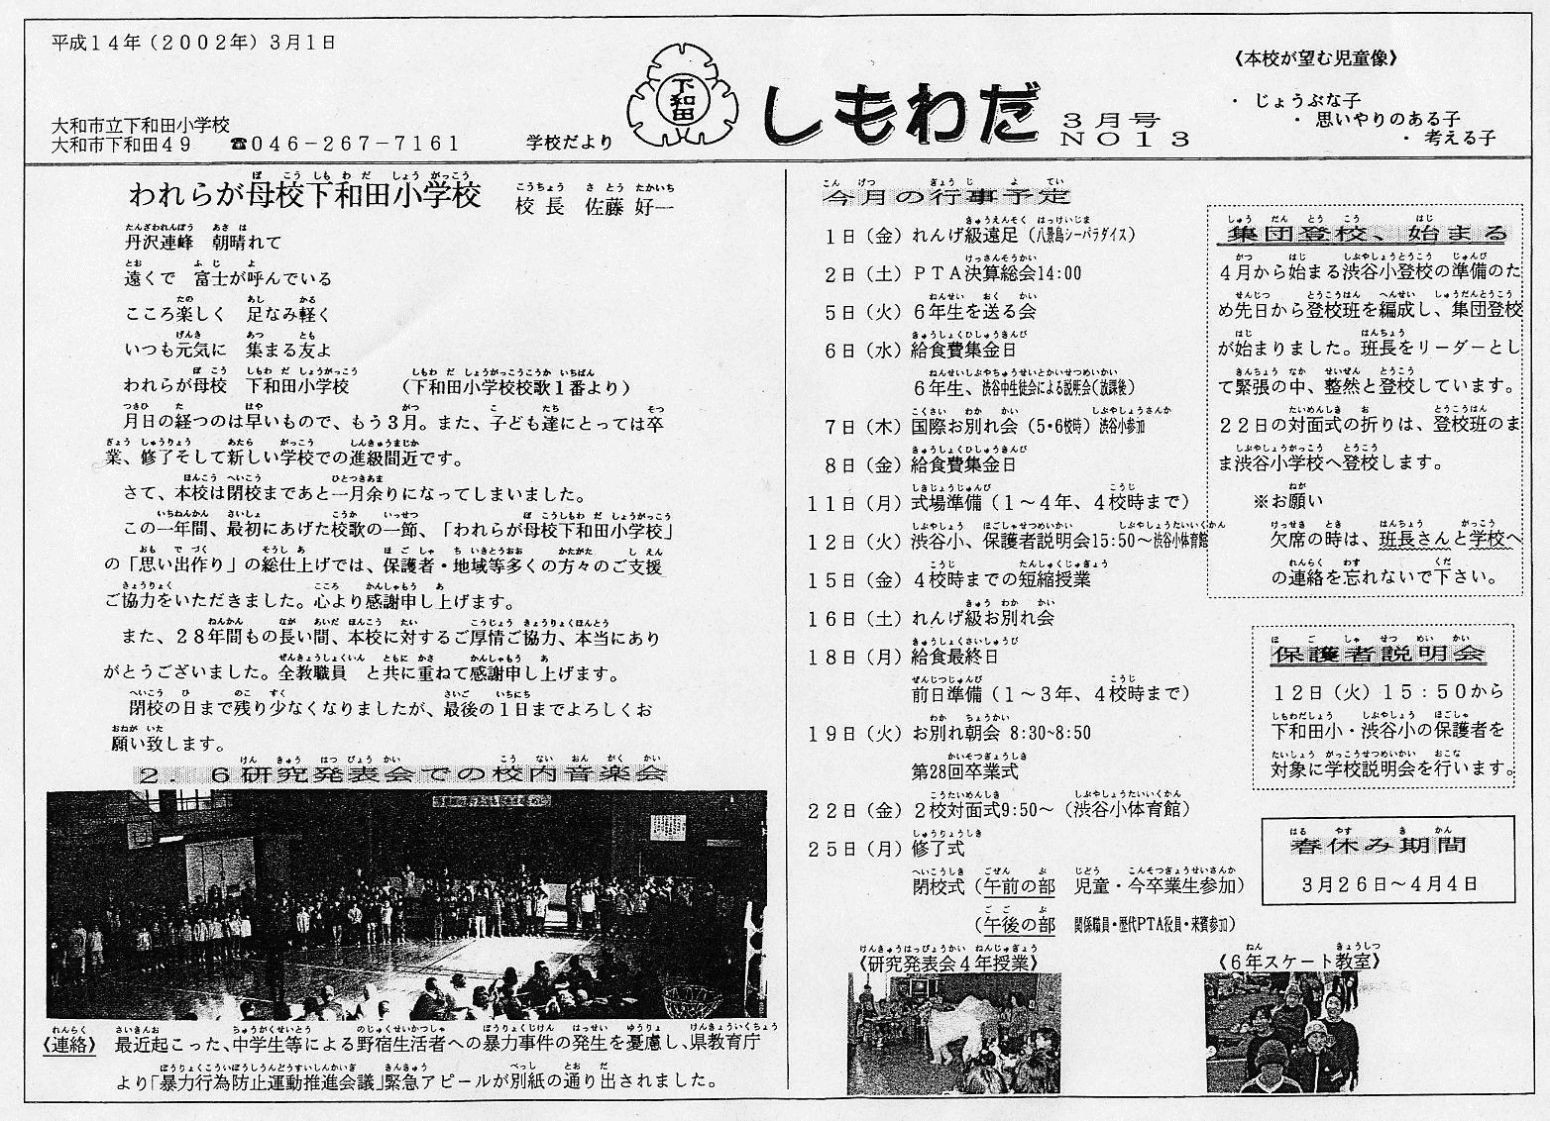 平成14年(2002年)3月1日
大和市立下和田小学校
大和市下和田49 ☎046-267-7161
学校だより
下和田
しもわだ
3月号
NO13
《本校が望む児童像》
・じょうぶな子
・思いやりのある子
・考える子
われらが母校下和田小学校 校長 佐藤 好一
丹沢連峰 朝晴れて
遠くで 富士が呼んでいる
こころ楽しく 足なみ軽く
いつも元気に 集まる友よ
われらが母校 下和田小学校 (下和田小学校校歌1番より)
月日の経つのは早いもので、もう3月。また、子ども達にとっては卒
業、修了そして新しい学校での進級間近です。
さて、本校は閉校まであと一月余りになってしまいました。
この一年間、最初にあげた校歌の一節、「われらが母校下和田小学校」
の「思い出作り」の総仕上げでは、保護者・地域等多くの方々のご支援
ご協力をいただきました。心より感謝申し上げます。
また、28年間もの長い間、本校に対するご厚情ご協力、本当にあり
がとうございました。全教職員 と共に重ねて感謝申し上げます。
閉校の日まで残り少なくなりましたが、最後の1日までよろしくお
願い致します。
2.6研究発表会での校内音楽会
《連絡》 最近起こった、中学生等による野宿生活者への暴力事件の発生を憂慮し、県教育庁
より「暴力行為防止運動推進会議」緊急アピールが別紙の通り出されました。
今月の行事予定
1日(金)れんげ級遠足(八景島シーパラダイス)
2日(土)PTA決算総会14:00
5日(火)6年生を送る会
6日(水)給食費集金日
6年生、渋谷中生徒会による説明会(放課後)
7日(木)国際お別れ会(5・6校時)渋谷小参加
8日(金)給食費集金日
11日(月)式場準備(1~4年、4校時まで)
12日(火)渋谷小、保護者説明会15:50~渋谷小体育館
15日(金)4校時までの短縮授業
16日(土)れんげ級お別れ会
18日(月)給食最終日
前日準備(1~3年、4校時まで)
19日(火)お別れ朝会 8:30~8:50
第28回卒業式
22日(金)2校対面式9:50~(渋谷小体育館)
25日(月)修了式
閉校式(午前の部 児童・今卒業生参加)
(午後の部 関係職員・歴代PTA役員・来賓参加)
《研究発表会4年授業》
《6年スケート教室》
集団登校、始まる
4月から始まる渋谷小登校の準備のた
め先日から登校班を編成し、集団登校
が始まりました。班長をリーダーとし
て緊張の中、整然と登校しています。
22日の対面式の折りは、登校班のま
ま渋谷小学校へ登校します。
※お願い
欠席の時は、班長さんと学校へ
の連絡を忘れないで下さい。
保護者説明会
12日(火)15:50から
下和田小・渋谷小の保護者を
対象に学校説明会を行います。
春休み期間
3月26日~4月4日